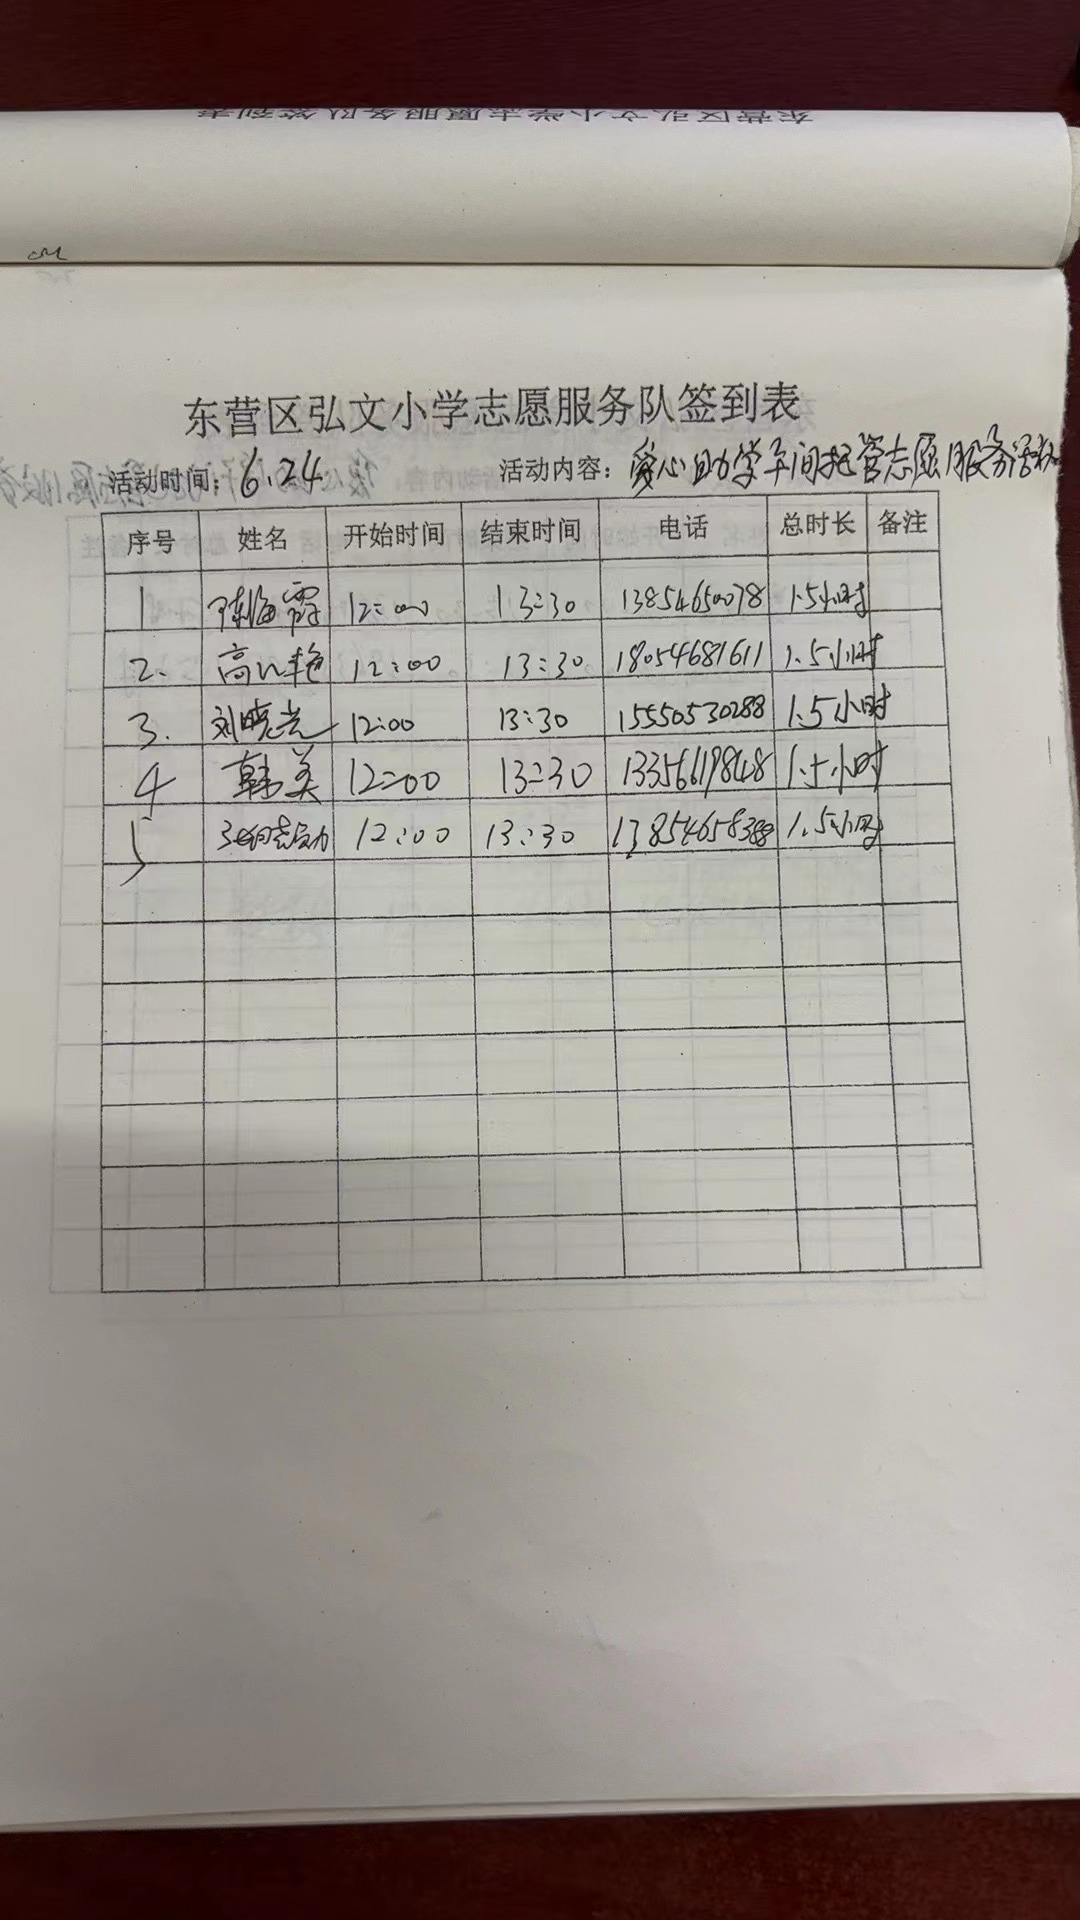 东营区弘文小学志愿服务队签到表
东营区弘文小学志愿服务队签到表
活动时间：6.24 活动内容：爱心助学午间托管志愿服务活动
序号 姓名 开始时间 结束时间 电话 总时长 备注
1 陈海霞 12:00 13:30 13854650078 1.5小时
2. 高 艳 12:00 13:30 18054681611 1.5小时
3. 刘晓光 12:00 13:30 15550530288 1.5小时
4 韩美 12:00 13:30 13356619848 1.5小时
5 12:00 13:30 13854658388 1.5小时